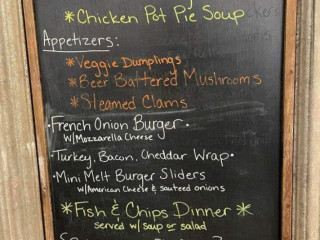 *Chicken Pot Pie Soup
Appetizers:
*Veggie Dumplings
*Beer Battered Mushrooms
*Steamed Clams
•French Onion Burger•
w/Mozzarella Cheese
•Turkey, Bacon, Cheddar Wrap•
•Mini Melt Burger Sliders
w/American Cheese & sauteed onions
*Fish & Chips Dinner*
served w/ soup or salad